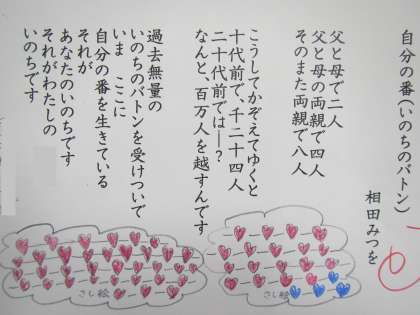 自分の番(いのちのバトン)
相田みつを
父と母で二人
父と母の両親で四人
そのまた両親で八人
こうしてかぞえてゆくと
十代前で、千二十四人
二十代前では―?
なんと、百万人を越すんです
過去無量の
いのちのバトンを受けついで
いま ここに
自分の番を生きている
それが
あなたのいのちです
それがわたしの
いのちです
さし絵
さし絵